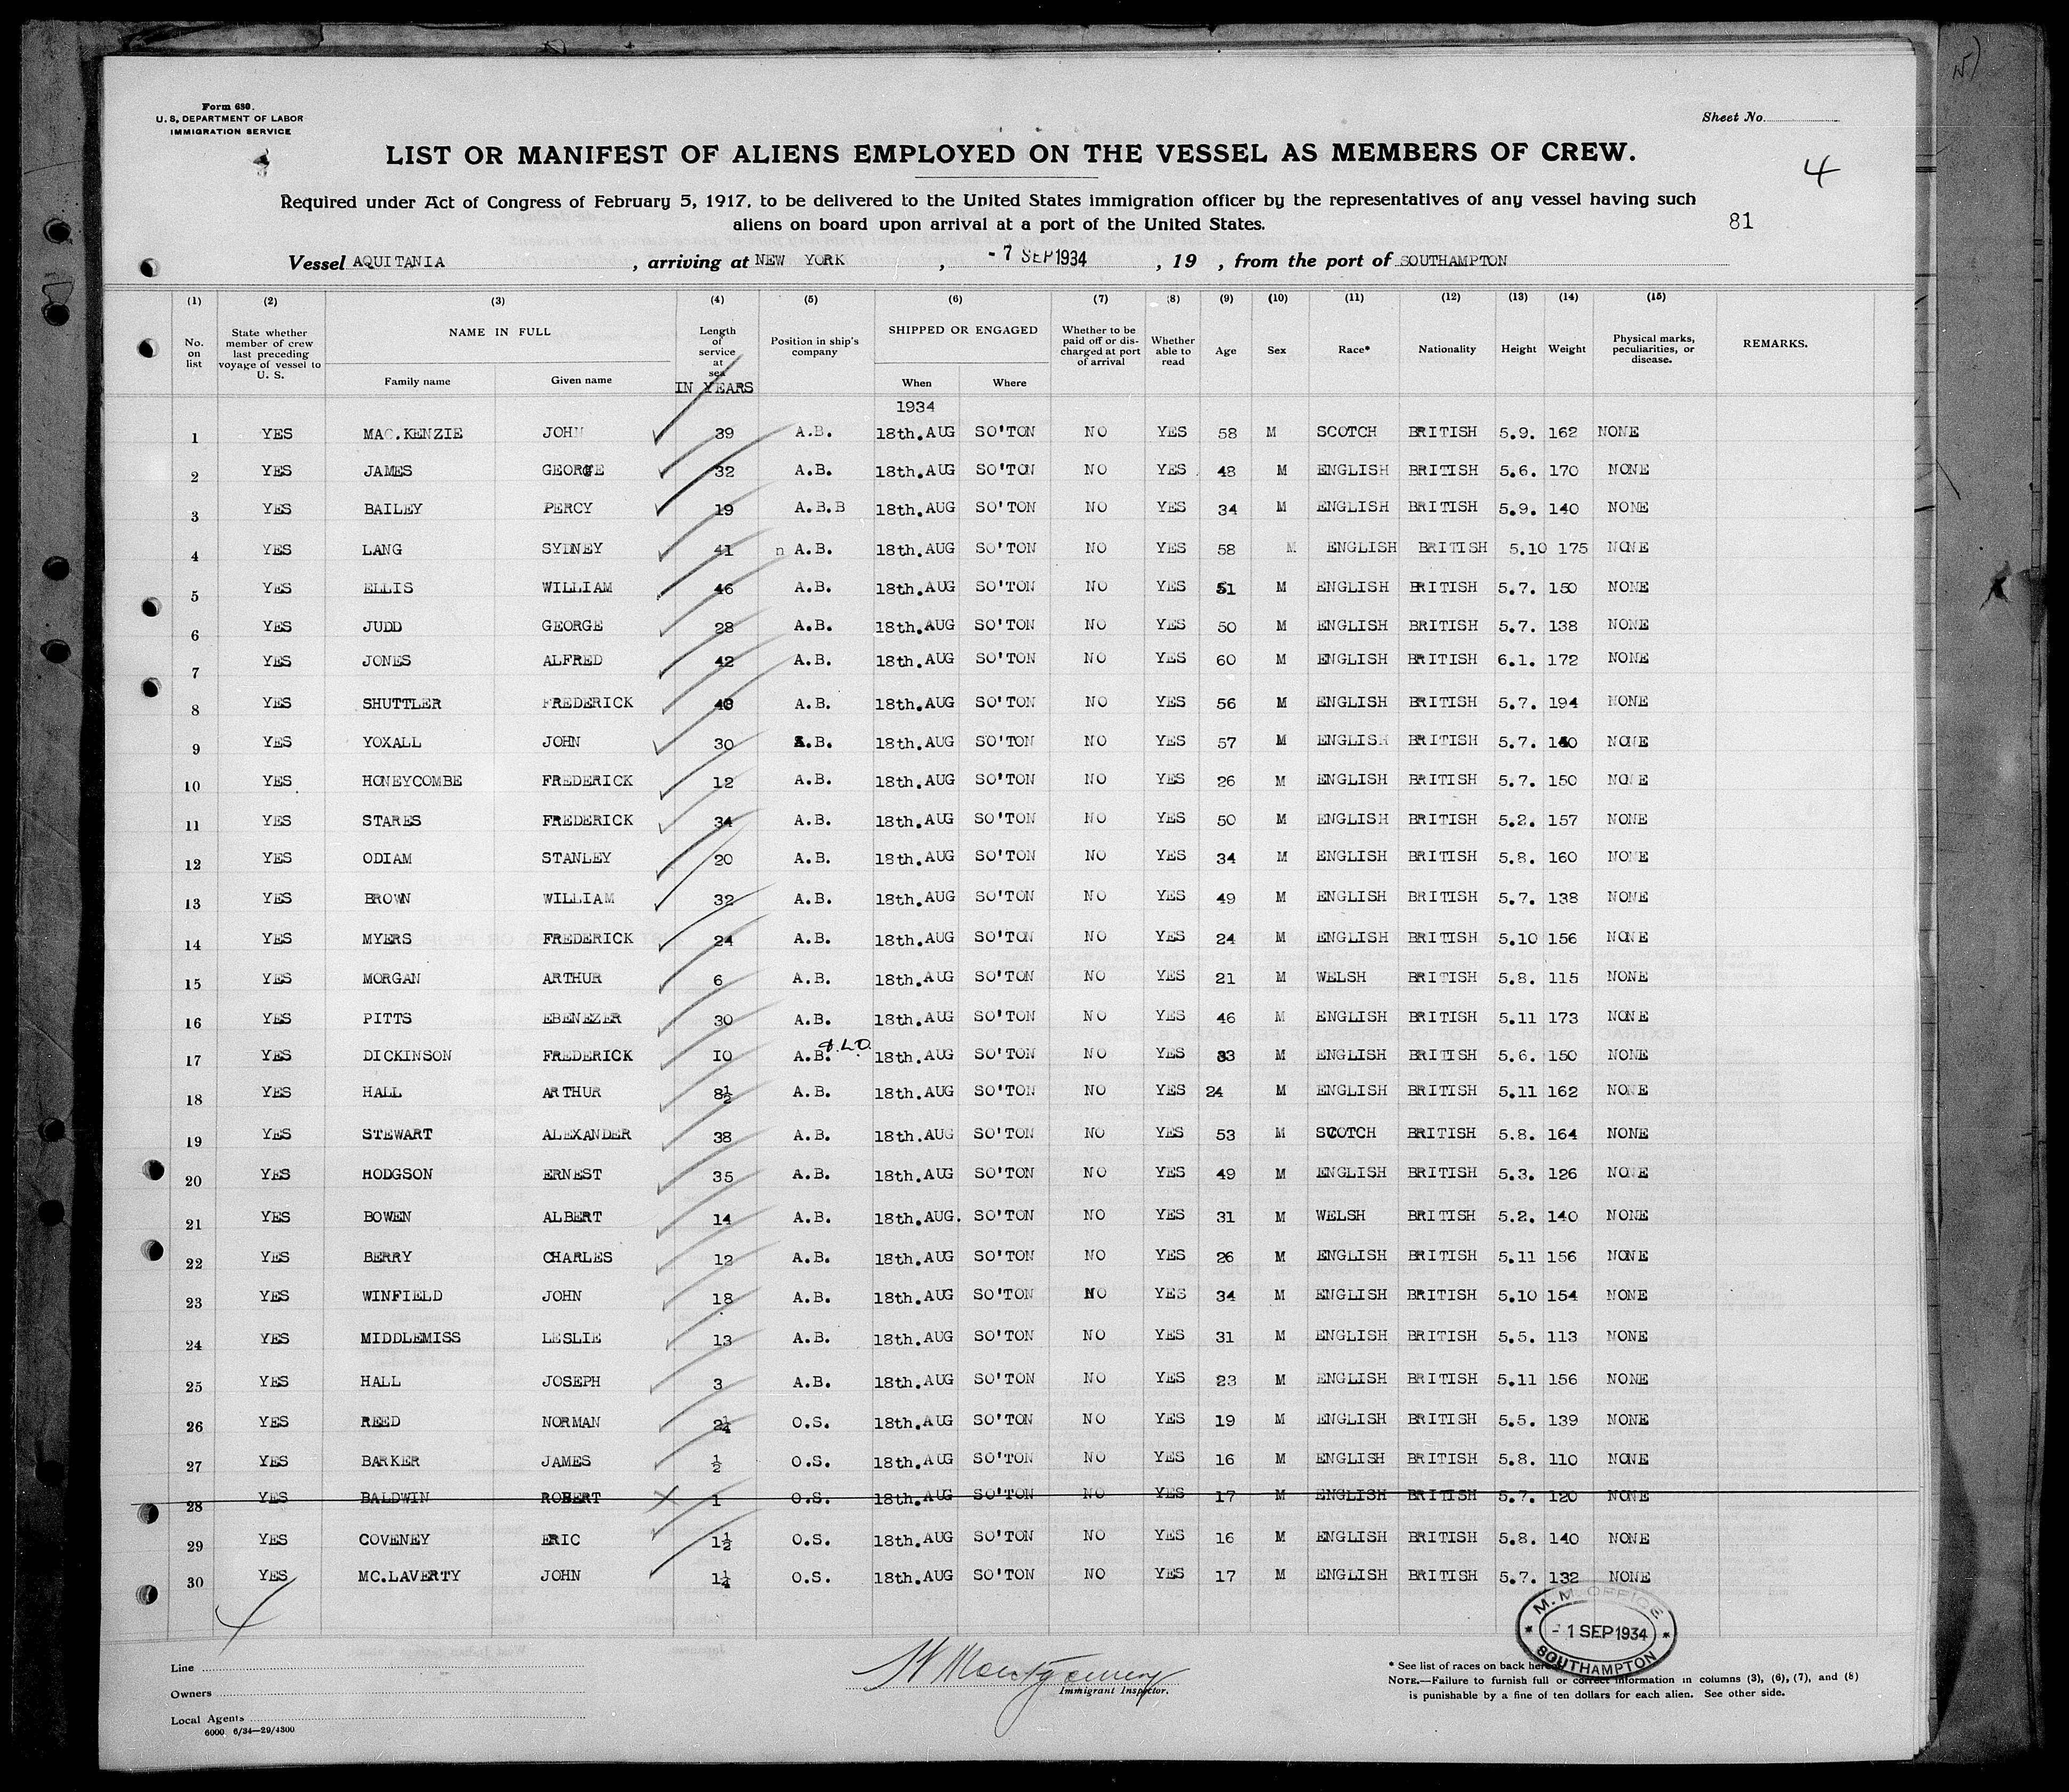 Form 680.
U. S. DEPARTMENT OF LABOR
IMMIGRATION SERVICE
Sheet No.
LIST OR MANIFEST OF ALIENS EMPLOYED ON THE VESSEL AS MEMBERS OF CREW.
4
Required under Act of Congress of February 5, 1917, to be delivered to the United States immigration officer by the representatives of any vessel having such
aliens on board upon arrival at a port of the United States.
81
Vessel AQUITANIA, arriving at NEW YORK, - 7 SEP 1934, 19 , from the port of SOUTHAMPTON
(1) (2) (3) (4) (5) (6) (7) (8) (9) (10) (11) (12) (13) (14) (15)
No. on list State whether member of crew last preceding voyage of vessel to U. S. NAME IN FULL Family name Given name Length of service at sea IN YEARS Position in ship's company SHIPPED OR ENGAGED When Where Whether to be paid off or discharged at port of arrival Whether able to read Age Sex Race* Nationality Height Weight Physical marks, peculiarities, or disease. REMARKS.
1934
1 YES MAC.KENZIE JOHN 39 A.B. 18th.AUG SO'TON NO YES 58 M SCOTCH BRITISH 5.9. 162 NONE
2 YES JAMES GEORGE 32 A.B. 18th.AUG SO'TON NO YES 48 M ENGLISH BRITISH 5.6. 170 NONE
3 YES BAILEY PERCY 19 A.B.B 18th.AUG SO'TON NO YES 34 M ENGLISH BRITISH 5.9. 140 NONE
4 YES LANG SYDNEY 41 n A.B. 18th.AUG SO'TON NO YES 58 M ENGLISH BRITISH 5.10 175 NONE
5 YES ELLIS WILLIAM 46 A.B. 18th.AUG SO'TON NO YES 51 M ENGLISH BRITISH 5.7. 150 NONE
6 YES JUDD GEORGE 28 A.B. 18th.AUG SO'TON NO YES 50 M ENGLISH BRITISH 5.7. 138 NONE
7 YES JONES ALFRED 42 A.B. 18th.AUG SO'TON NO YES 60 M ENGLISH BRITISH 6.1. 172 NONE
8 YES SHUTTLER FREDERICK 40 A.B. 18th.AUG SO'TON NO YES 56 M ENGLISH BRITISH 5.7. 194 NONE
9 YES YOXALL JOHN 30 A.B. 18th.AUG SO'TON NO YES 57 M ENGLISH BRITISH 5.7. NONE
10 YES HONEYCOMBE FREDERICK 12 A.B. 18th.AUG SO'TON NO YES 26 M ENGLISH BRITISH 5.7. 150 NONE
11 YES STARES FREDERICK 34 A.B. 18th.AUG SO'TON NO YES 50 M ENGLISH BRITISH 5.2. 157 NONE
12 YES ODIAM STANLEY 20 A.B. 18th.AUG SO'TON NO YES 34 M ENGLISH BRITISH 5.8. 160 NONE
13 YES BROWN WILLIAM 32 A.B. 18th.AUG SO'TON NO YES 49 M ENGLISH BRITISH 5.7. 138 NONE
14 YES MYERS FREDERICK 24 A.B. 18th.AUG SO'TON NO YES 24 M ENGLISH BRITISH 5.10 156 NONE
15 YES MORGAN ARTHUR 6 A.B. 18th.AUG SO'TON NO YES 21 M WELSH BRITISH 5.8. 115 NONE
16 YES PITTS EBENEZER 30 A.B. 18th.AUG SO'TON NO YES 46 M ENGLISH BRITISH 5.11 173 NONE
17 YES DICKINSON FREDERICK IO A.B. 18th.AUG SO'TON NO YES 33 M ENGLISH BRITISH 5.6. 150 NONE
18 YES HALL ARTHUR 8½ A.B. 18th.AUG SO'TON NO YES 24 M ENGLISH BRITISH 5.11 162 NONE
19 YES STEWART ALEXANDER 38 A.B. 18th.AUG SO'TON NO YES 53 M SCOTCH BRITISH 5.8. 164 NONE
20 YES HODGSON ERNEST 35 A.B. 18th.AUG SO'TON NO YES 49 M ENGLISH BRITISH 5.3. 126 NONE
21 YES BOWEN ALBERT 14 A.B. 18th.AUG. SO'TON NO YES 31 M WELSH BRITISH 5.2. 140 NONE
22 YES BERRY CHARLES 12 A.B. 18th.AUG SO'TON NO YES 26 M ENGLISH BRITISH 5.11 156 NONE
23 YES WINFIELD JOHN 18 A.B. 18th.AUG SO'TON NO YES 34 M ENGLISH BRITISH 5.10 154 NONE
24 YES MIDDLEMISS LESLIE 13 A.B. 18th.AUG SO'TON NO YES 31 M ENGLISH BRITISH 5.5. 113 NONE
25 YES HALL JOSEPH 3 A.B. 18th.AUG SO'TON NO YES 23 M ENGLISH BRITISH 5.11 156 NONE
26 YES REED NORMAN 2¼ O.S. 18th.AUG SO'TON NO YES 19 M ENGLISH BRITISH 5.5. 139 NONE
27 YES BARKER JAMES ½ O.S. 18th.AUG SO'TON NO YES 16 M ENGLISH BRITISH 5.8. 110 NONE
28 YES BALDWIN ROBERT 1 O.S. 18th.AUG SO'TON NO YES 17 M ENGLISH BRITISH 5.7. 120 NONE
29 YES COVENEY ERIC 1½ O.S. 18th.AUG SO'TON NO YES 16 M ENGLISH BRITISH 5.8. 140 NONE
30 YES MC.LAVERTY JOHN 1¼ O.S. 18th.AUG SO'TON NO YES 17 M ENGLISH BRITISH 5.7. 132 NONE
M. M. OFFICE
- 1 SEP 1934
SOUTHAMPTON
Line
Owners
Local Agents
6000 6/34—29/4300
H Montgomery
Immigrant Inspector.
* See list of races on back hereof
NOTE.—Failure to furnish full or correct information in columns (3), (6), (7), and (8)
is punishable by a fine of ten dollars for each alien. See other side.